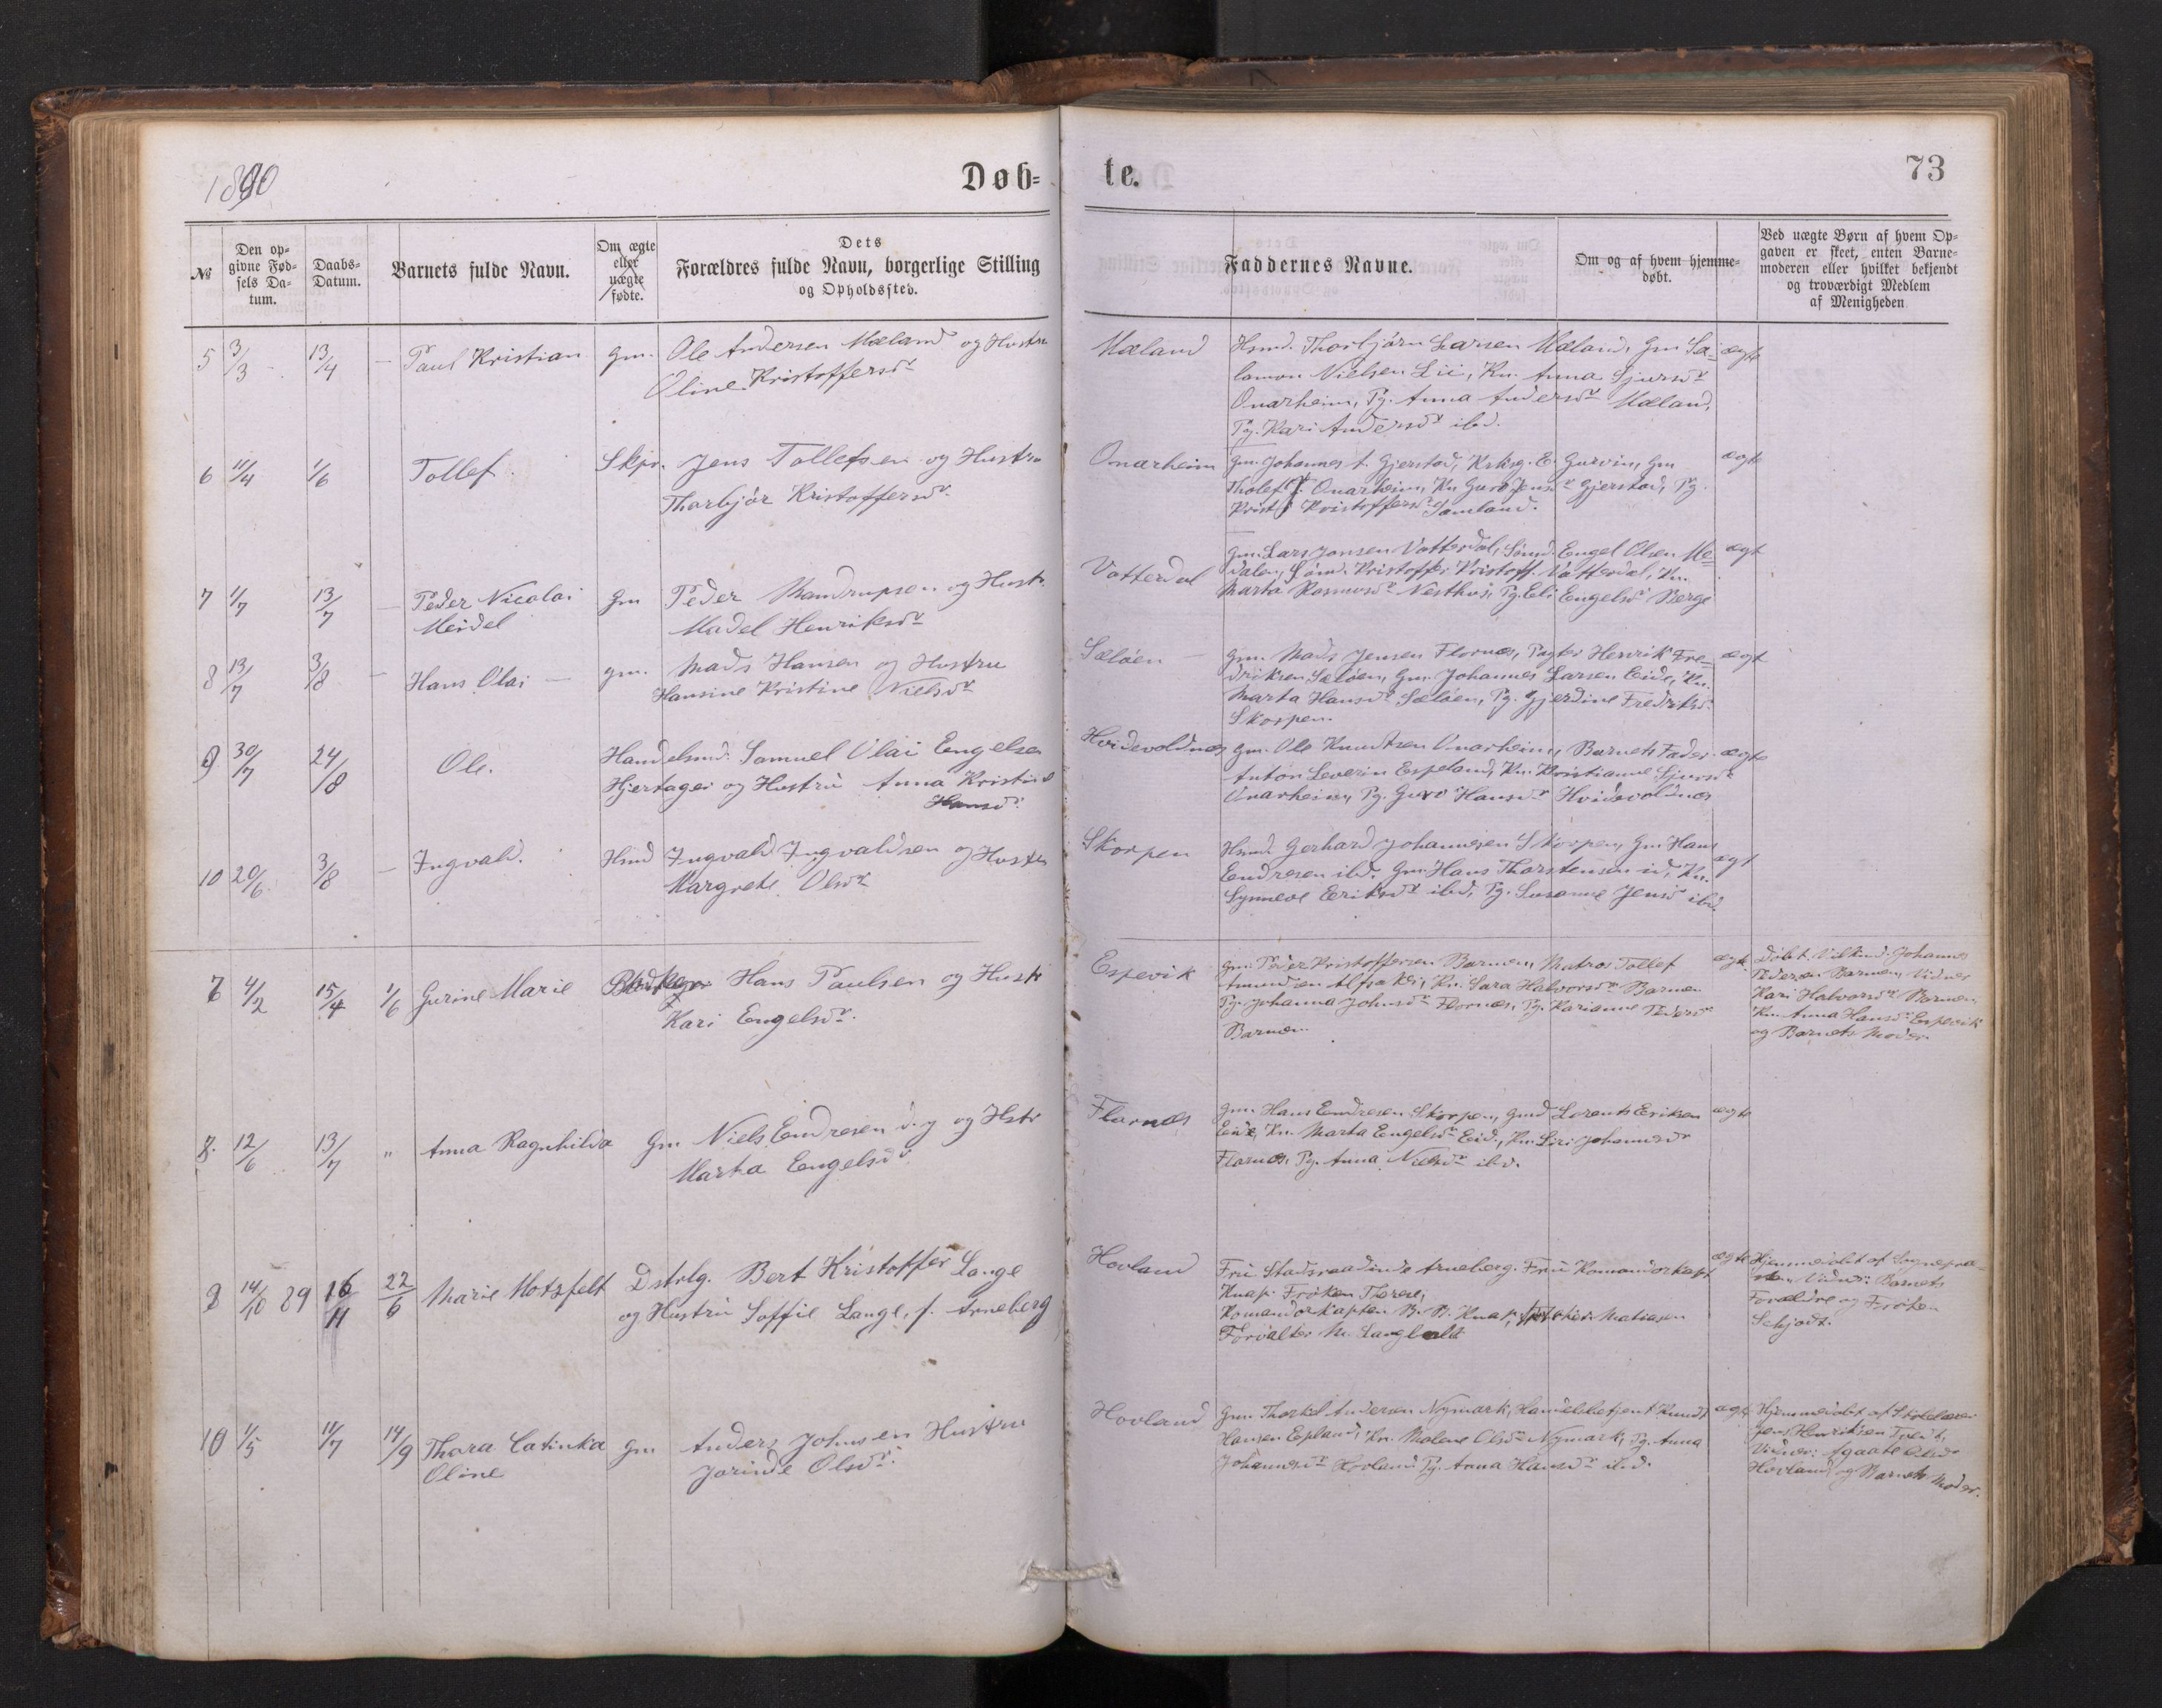 1890
Døb=
te.
73
№
Den op=
givne Fød=
sels Da=
tum.
Daabs=
Datum.
Barnets fulde Navn.
Om ægte
eller
uægte
fødte.
Dets
Forældres fulde Navn, borgerlige Stilling
og Opholdssted.
Faddernes Navne.
Om og af hvem hjemme=
døbt.
Ved uægte Børn af hvem Op=
gaven er skeet, enten Barne=
moderen eller hvilket bekjendt
og troværdigt Medlem
af Menigheden
5 3/3 13/4 — Paul Kristian gm. Ole Andersen Mæland og Hustru
Oline Kristoffersdr
Mæland
Hsmd. Thorbjørn Larsen Mæland, Gm Sa-
lamon Nielsen Lii, Kn. Anna Sjursdr
Onarheim, Pg. Anna Andersdr Mæland,
Pg. Kari Andersdr ibd.
ægte
6 11/4 1/6 Tollef. Skpr. Jens Tollefsen og Hustru
Thorbjør Kristoffersdr.
Onarheim
Gm. Johannes A. Gjerstad, Krksg. E. Gurvin, Gm
Tholef J. Onarheim, Kn Guro Jensdr Gjerstad, Pg.
Kristi Kristoffersdr Samland.
ægte
7 1/7 13/7 — Peder Nicolai
Meidel
gm Peder Mandrupsen og Hustr.
Madel Henriksdr
Vatterdal
Gm. Lars Jansen Vatterdal, Sömd. Engel Olsen Me-
dalen, Sömd. Kristoffer Kristoff. Vatterdal, Kn.
Marta Rasmusdr Nesthus, Pg. Eli Engelsdr Berge
ægt
8 13/7 3/8 — Hans Olai — gm. Mads Hansen og Hustru
Hansine Kristine Nielsdr
Sæløen
Gm. Mads Jensen Flornæs, Pagter Henrik Fre-
driksen Sæløen, Gm. Johannes Larsen Eide, Kn.
Marta Hansdr Sæløen, Pg. Gjerdine Fredriksdr
Skorpen.
ægt
9 30/7 24/8 Ole. Handelsmd. Samuel Olai Engelsen
Hjertager og Hustru Anna Kristine
Hansdr
Hvidevoldnæs
Gm. Ole Knudtsen Onarheim, Barnets Fader.
Anton Severin Espeland, Kn. Kristianne Sjursdr
Onarheim, Pg. Guro Hansdr Hvidevoldnæs
ægte
10 20/6 3/8 — Ingvald. Hsmd Ingvald Ingvaldsen og Hustru
Margrete Olsdr
Skorpen
Hsmd. Gerhard Johannesen Skorpen, Gm Hans
Endresen ibd. Gm. Hans Thorstensen id, Kn.
Synneve Eriksdr ibd, Pg. Susanne Jensdr ibd.
ægt
7 4/2 15/4 1/6 Gurine Marie Hans Paulsen og Hustr
Kari Engelsdr.
Espevik
Gm. Peder Kristoffersen Barmen, Matros Tollef
Amundsen Kn. Sara Halvorsdr Barmen
Pg. Johanna Johnsdr Flornæs, Pg. Karianne Pedersdr
Barmen
ægte
Döbt Johannes
Pedersen Barmen, Vidner
Kari Halvorsdr Barmen,
Kn. Anna Hansdr Espevik
og Barnets Moder.
8. 12/6 13/7 " Anna Ragnhilda Gm Niels Endresen d.y og Hstr
Marta Engelsdr
Flornæs
Gm. Hans Endresen Skorpen, Gmd Lorents Eriksen
Eide, Kn. Marta Engelsdr Eid., Kn. Siri Johannesdr
Flornæs, Pg. Anna Nielsdr ibd.
ægte
9 14/10 89 16/11 22/6 Marie Motzfelt Dstrlg. Bert Kristoffer Lange
og Hustru Soffie Lange, f. Arneberg
Hovland
Fru Stadsraadinde Arneberg. Fru Komandørkapt
Knap. Frøken Therese,
Komandörkapten B. B. Knap, Matiasen
Forvalter M. Langballe
ægte
Hjemmedöbt af Sognepræ-
sten Vidn: Barnets
Forældre og Frøken
Schjødt.
10 1/5 11/7 14/9 Thora Catinka
Oline
gm Anders Johnsen Hustru
Jorinde Olsdr.
Hovland
Gm Thorkel Andersen Nymark, Handelsbetjent Knudt
Hansen Espland, Kn. Malene Olsdr Nymark, Pg. Anna
Johannesdr Hovland Pg. Anna Hansdr ibd.
ægte
Hjemmedöbt af Skolelærer
Jens Henriksen Tveit,
Vidner: Agaate Olsdr
Hovland og Barnets Moder.